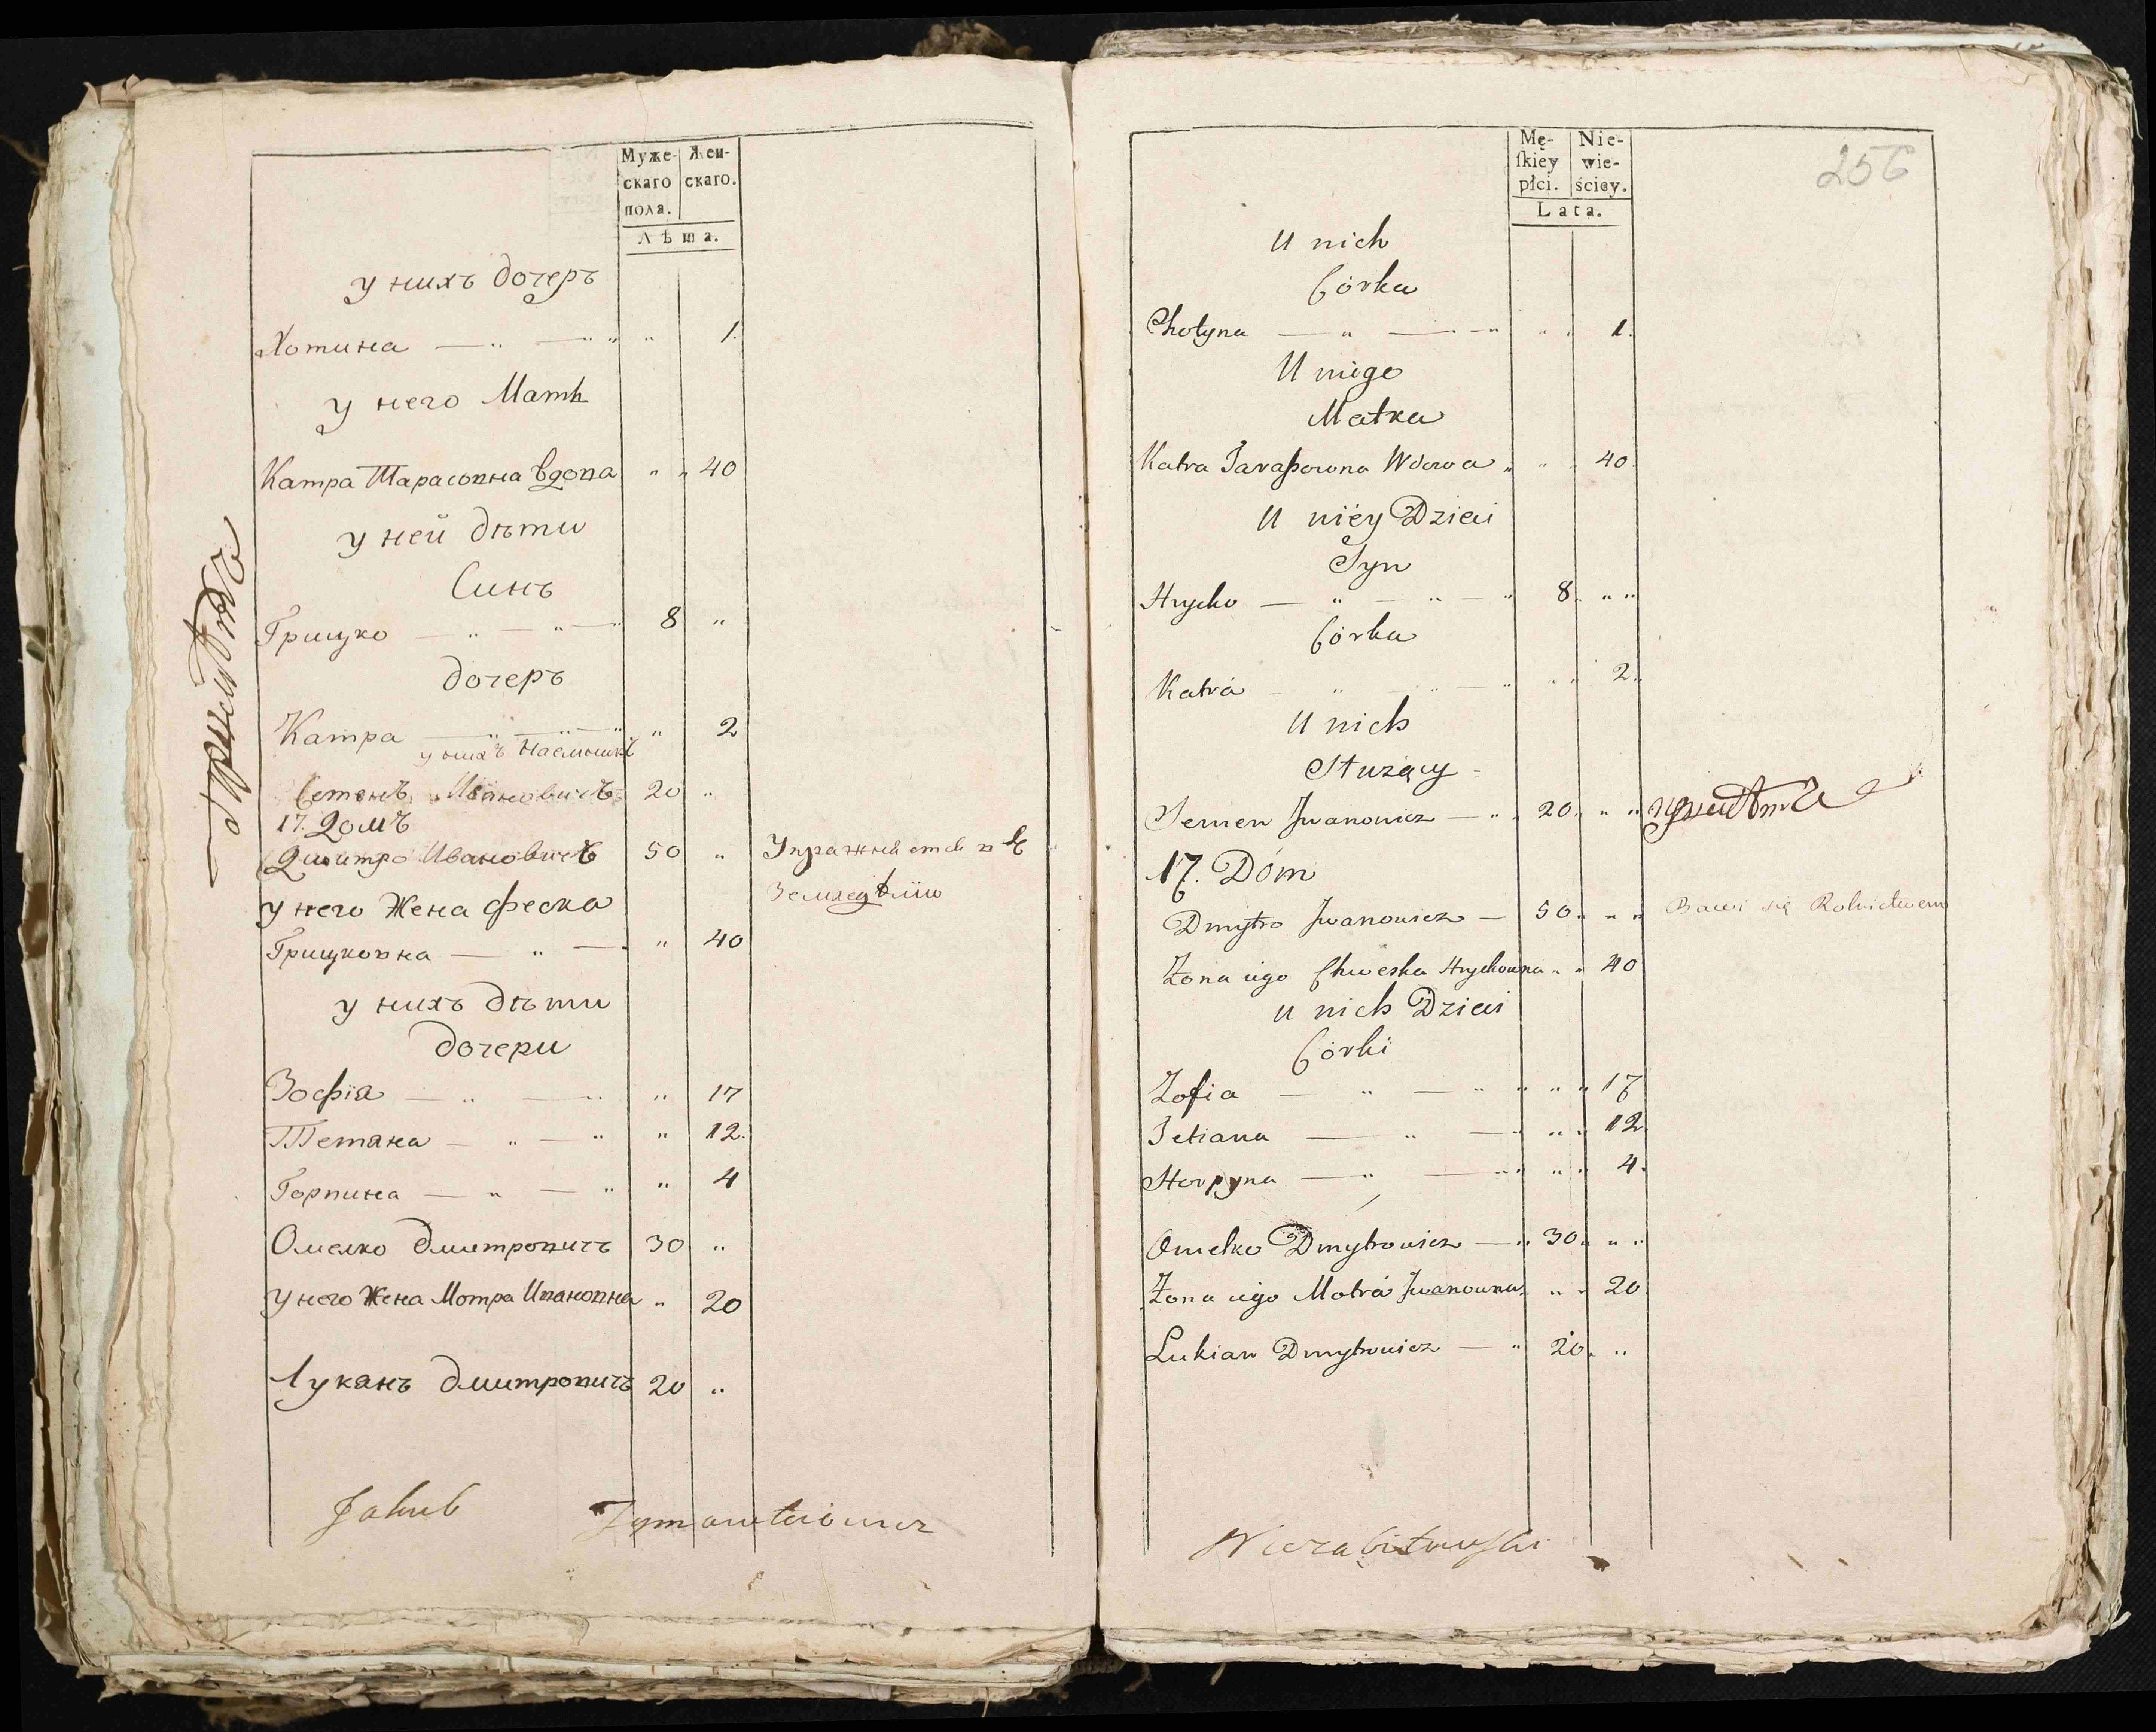 Муже-
скаго
пола.
Жен-
скаго.
Лѣта.
у нихъ дочеръ
Хотина — „ — „ „ „ 1.
у него Мать
Катра Тарасовна вдова „ „ 40
у ней дѣти
Синъ
Грицко — „ — „ — „ 8 „
дочеръ
Катра — „ — „ — „ „ 2
у нихъ Наемникъ
Семенъ Ивановичъ 20 „
17. Домъ
Дмитро Ивановичъ 50 „ Упражняется въ
Земледѣліи
у него Жена Феска
Грицковна — „ — „ 40
у нихъ дѣти
дочери
Зофія — „ — „ „ 17
Тетяна — „ — „ „ 12.
Горпина — „ — „ „ 4
Омелко Дмитровичъ 30 „
у него Жена Мотра Ивановна „ 20
Луканъ Дмитровичъ 20 „
Jakub
256
Mę-
ſkiéy
płci.
Nie-
wie-
ściey.
Lata.
U nich
Córka
Chotyna — „ — „ „ „ 1.
U niego
Matka
Katra Taraſsowna Wdowa „ „ „ 40.
U niéy Dzieci
Syn
Hrycko — „ — „ — „ 8. „ „
Córka
Katra — „ — „ — „ „ „ 2.
U nich
Służący
Semen Jwanowicz — „ 20. „ „
17. Dóm
Dmytro Jwanowicz — 50. „ „ Bawi się Rolnictwem
Żona iego Chweska Hryckowna „ „ 40
U nich Dzieci
Córki
Zofia — „ — „ „ „ „ 17
Tetiana — „ — „ „ „ 12.
Horpyna — „ — „ „ „ 4.
Omelko Dmytrowicz — „ 30. „ „
Żona iego Motra Jwanowna „ „ 20
Lukian Dmytrowicz — „ 20. „